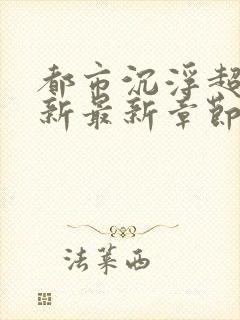 都市沉浮超
新最新章节
法莱西